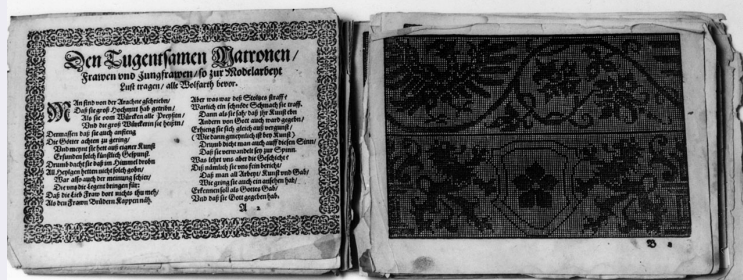 Den Tugentsamen Matronen/
Frawen vnd Jungfrawen/ so zur Modelarbeyt
Lust tragen/ alle Wolfarth bevor.
MAn find von der Arachne gschrieben/
Daß sie groß Hochmut hab getriben/
Als sie vom Würcken alle Preysten/
Vnd die groß Würckerin sie heisten/
Dermassen daß sie auch anfieng
Die Götter achten zu gering/
Vnd meynt sie het auß eigner Kunst
Erfunden solch künstlich Gespunst.
Drumb dacht sie daß im Himmel drobn
All Heyligen hetten nicht solch gobn/
War also auch der meinung schier/
Die vns die Legent bringen für:
Daß die Lieb Fraw dort nichts thu meh/
Als den Frawn Brüdern Kappen näh.
Aber was war deß Stoltzes straff?
Warlich ein schnöde Schmach sie traff.
Dann als sie sah daß jhr Kunst ebn
Andern von Gott auch ward gegebn/
Erhieng sie sich gleich auß vergunst/
(Wie dann gmeynlich ist bey Kunst)
Drumb dicht man auch auff diesen Sinn/
Daß sie worn andelt sey zur Spinn.
Was lehrt vns aber die Geschicht?
Diß nämlich sie vns fein bericht/
Daß man all Arbeyt/ Kunst vnd Gab/
Wie gring sie auch ein ansehen hab/
Erkennen soll als Gottes Gab/
Vnd daß sie Gott gegeben hab.
A 2
B 2